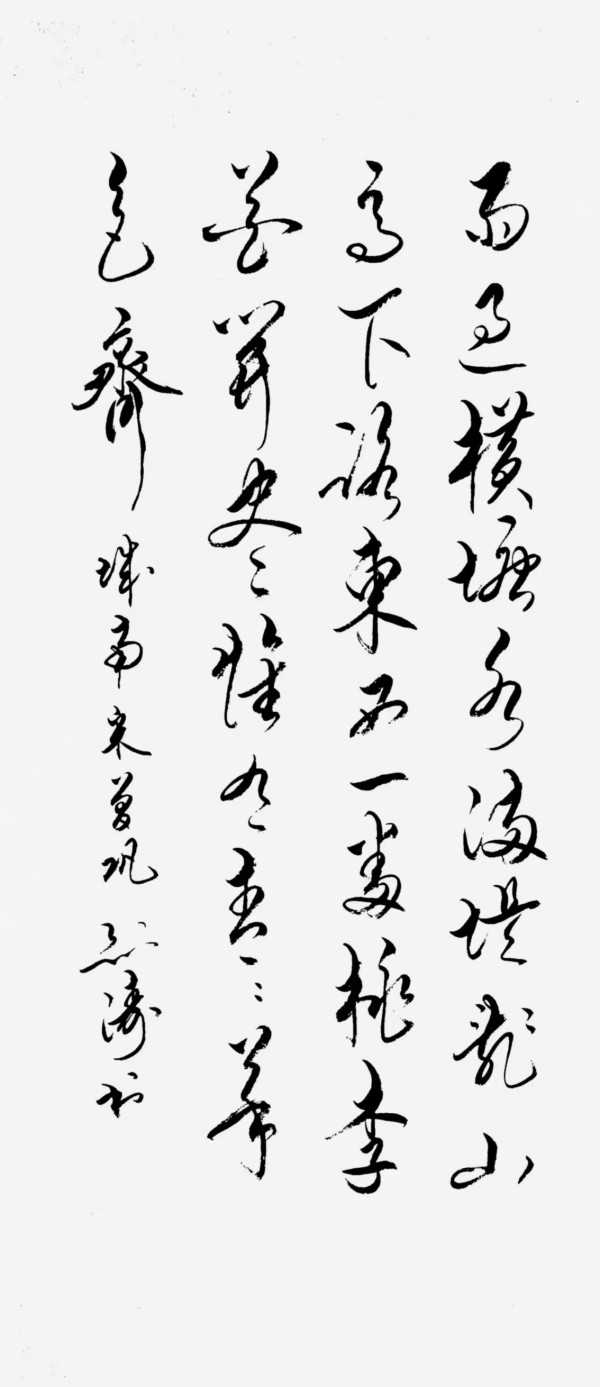 雨過橫塘水滿堤亂山
高下路東西一番桃李
花開盡惟有青々草
色齊 城南宋曾巩 濤书